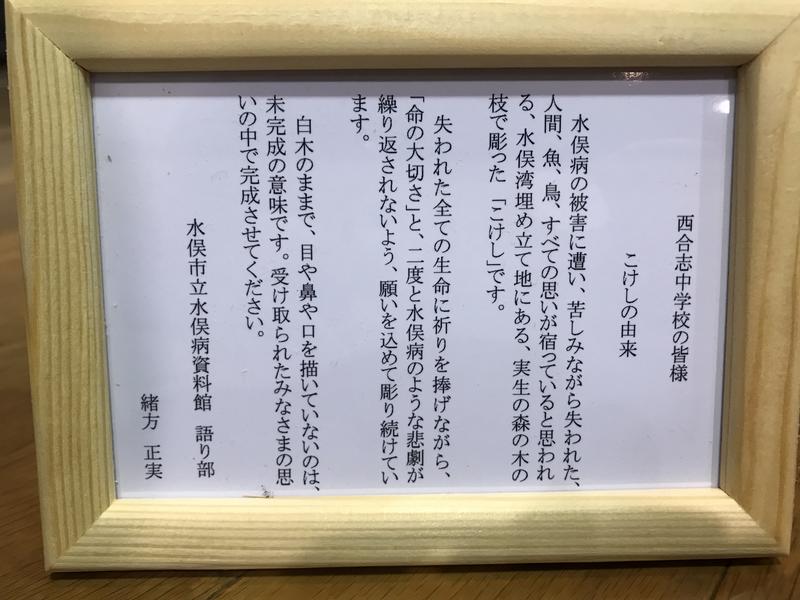 西合志中学校の皆様
こけしの由来
水俣病の被害に遭い、苦しみながら失われた、
人間、魚、鳥、すべての思いが宿っていると思われ
る、水俣湾埋め立て地にある、実生の森の木の
枝で彫った「こけし」です。
失われた全ての生命に祈りを捧げながら、
「命の大切さ」と、二度と水俣病のような悲劇が
繰り返されないよう、願いを込めて彫り続けてい
ます。
白木のままで、目や鼻や口を描いていないのは、
未完成の意味です。受け取られたみなさまの思
いの中で完成させてください。
水俣市立水俣病資料館 語り部
緒方 正実